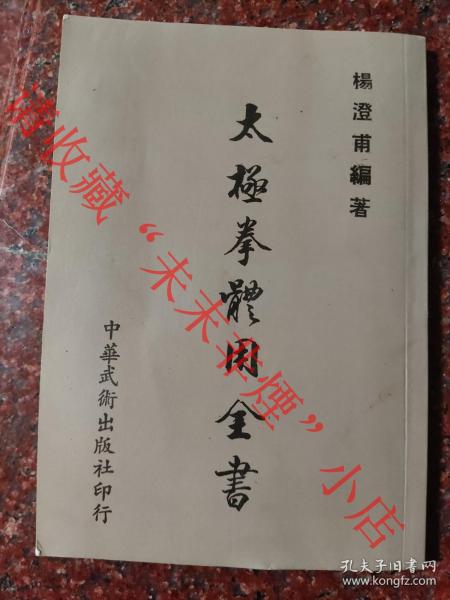 楊澄甫編著
太極拳體用全書
中華武術出版社印行
请收藏“未未草煙”小店
孔夫子旧书网
www.kongfz.com